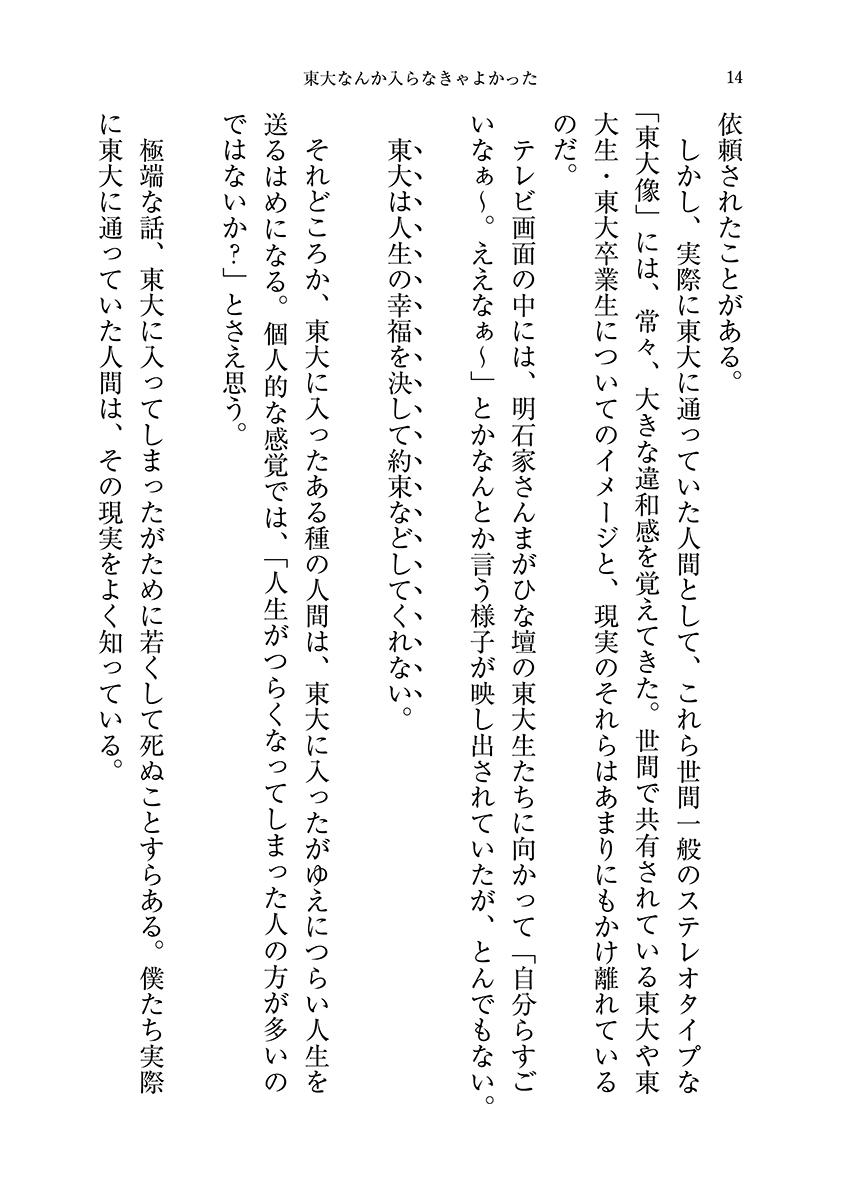 東大なんか入らなきゃよかった
14
依頼されたことがある。
しかし、実際に東大に通っていた人間として、これら世間一般のステレオタイプな
「東大像」には、常々、大きな違和感を覚えてきた。世間で共有されている東大や東
大生・東大卒業生についてのイメージと、現実のそれらはあまりにもかけ離れている
のだ。
テレビ画面の中には、明石家さんまがひな壇の東大生たちに向かって「自分らすご
いなぁ〜。ええなぁ〜」とかなんとか言う様子が映し出されていたが、とんでもない。
東大は人生の幸福を決して約束などしてくれない。
それどころか、東大に入ったある種の人間は、東大に入ったがゆえにつらい人生を
送るはめになる。個人的な感覚では、「人生がつらくなってしまった人の方が多いの
ではないか?」とさえ思う。
極端な話、東大に入ってしまったがために若くして死ぬことすらある。僕たち実際
に東大に通っていた人間は、その現実をよく知っている。